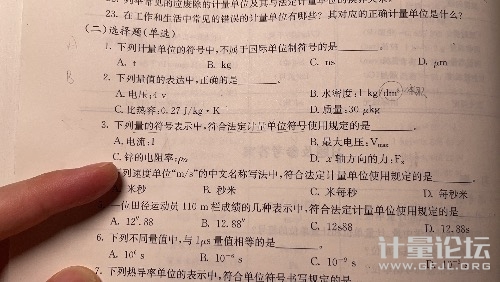 23. 在工作和生活中常见的错误的计量单位有哪些？其对应的正确计量单位是什么？
(二)选择题(单选)
1. 下列计量单位的符号中,不属于国际单位制符号的是
A. t B. kg C. ns D. μm
B
2. 下列量值的表达中,正确的是
A. 电压:4 v B. 水密度:1 kg/dm³
C. 比热容:0.27 J/kg·K D. 质量:30 μkg
3. 下列量的符号表示中,符合法定计量单位符号使用规定的是
A. 电流:I B. 最大电压:Vmax
C. 锌的电阻率:ρz D. x 轴方向的力:Fx
列速度单位"m/s"的中文名称写法中,符合法定计量单位使用规定的是
米秒 B. 秒米 C. 米每秒 D. 每秒米
一位田径运动员 110 m 栏成绩的几种表示中,符合法定计量单位使用规定的是
A. 12″.88 B. 12.88″ C. 12s88 D. 12.88s
6. 下列不同量值中,与 1μs 量值相等的是
A. 10⁶ s B. 10⁻⁶ s C. 10⁻⁹ s
7. 下列热导率单位的表示中,符合单位符号书写规定的是
计量论坛
WWW.GFJL.ORG